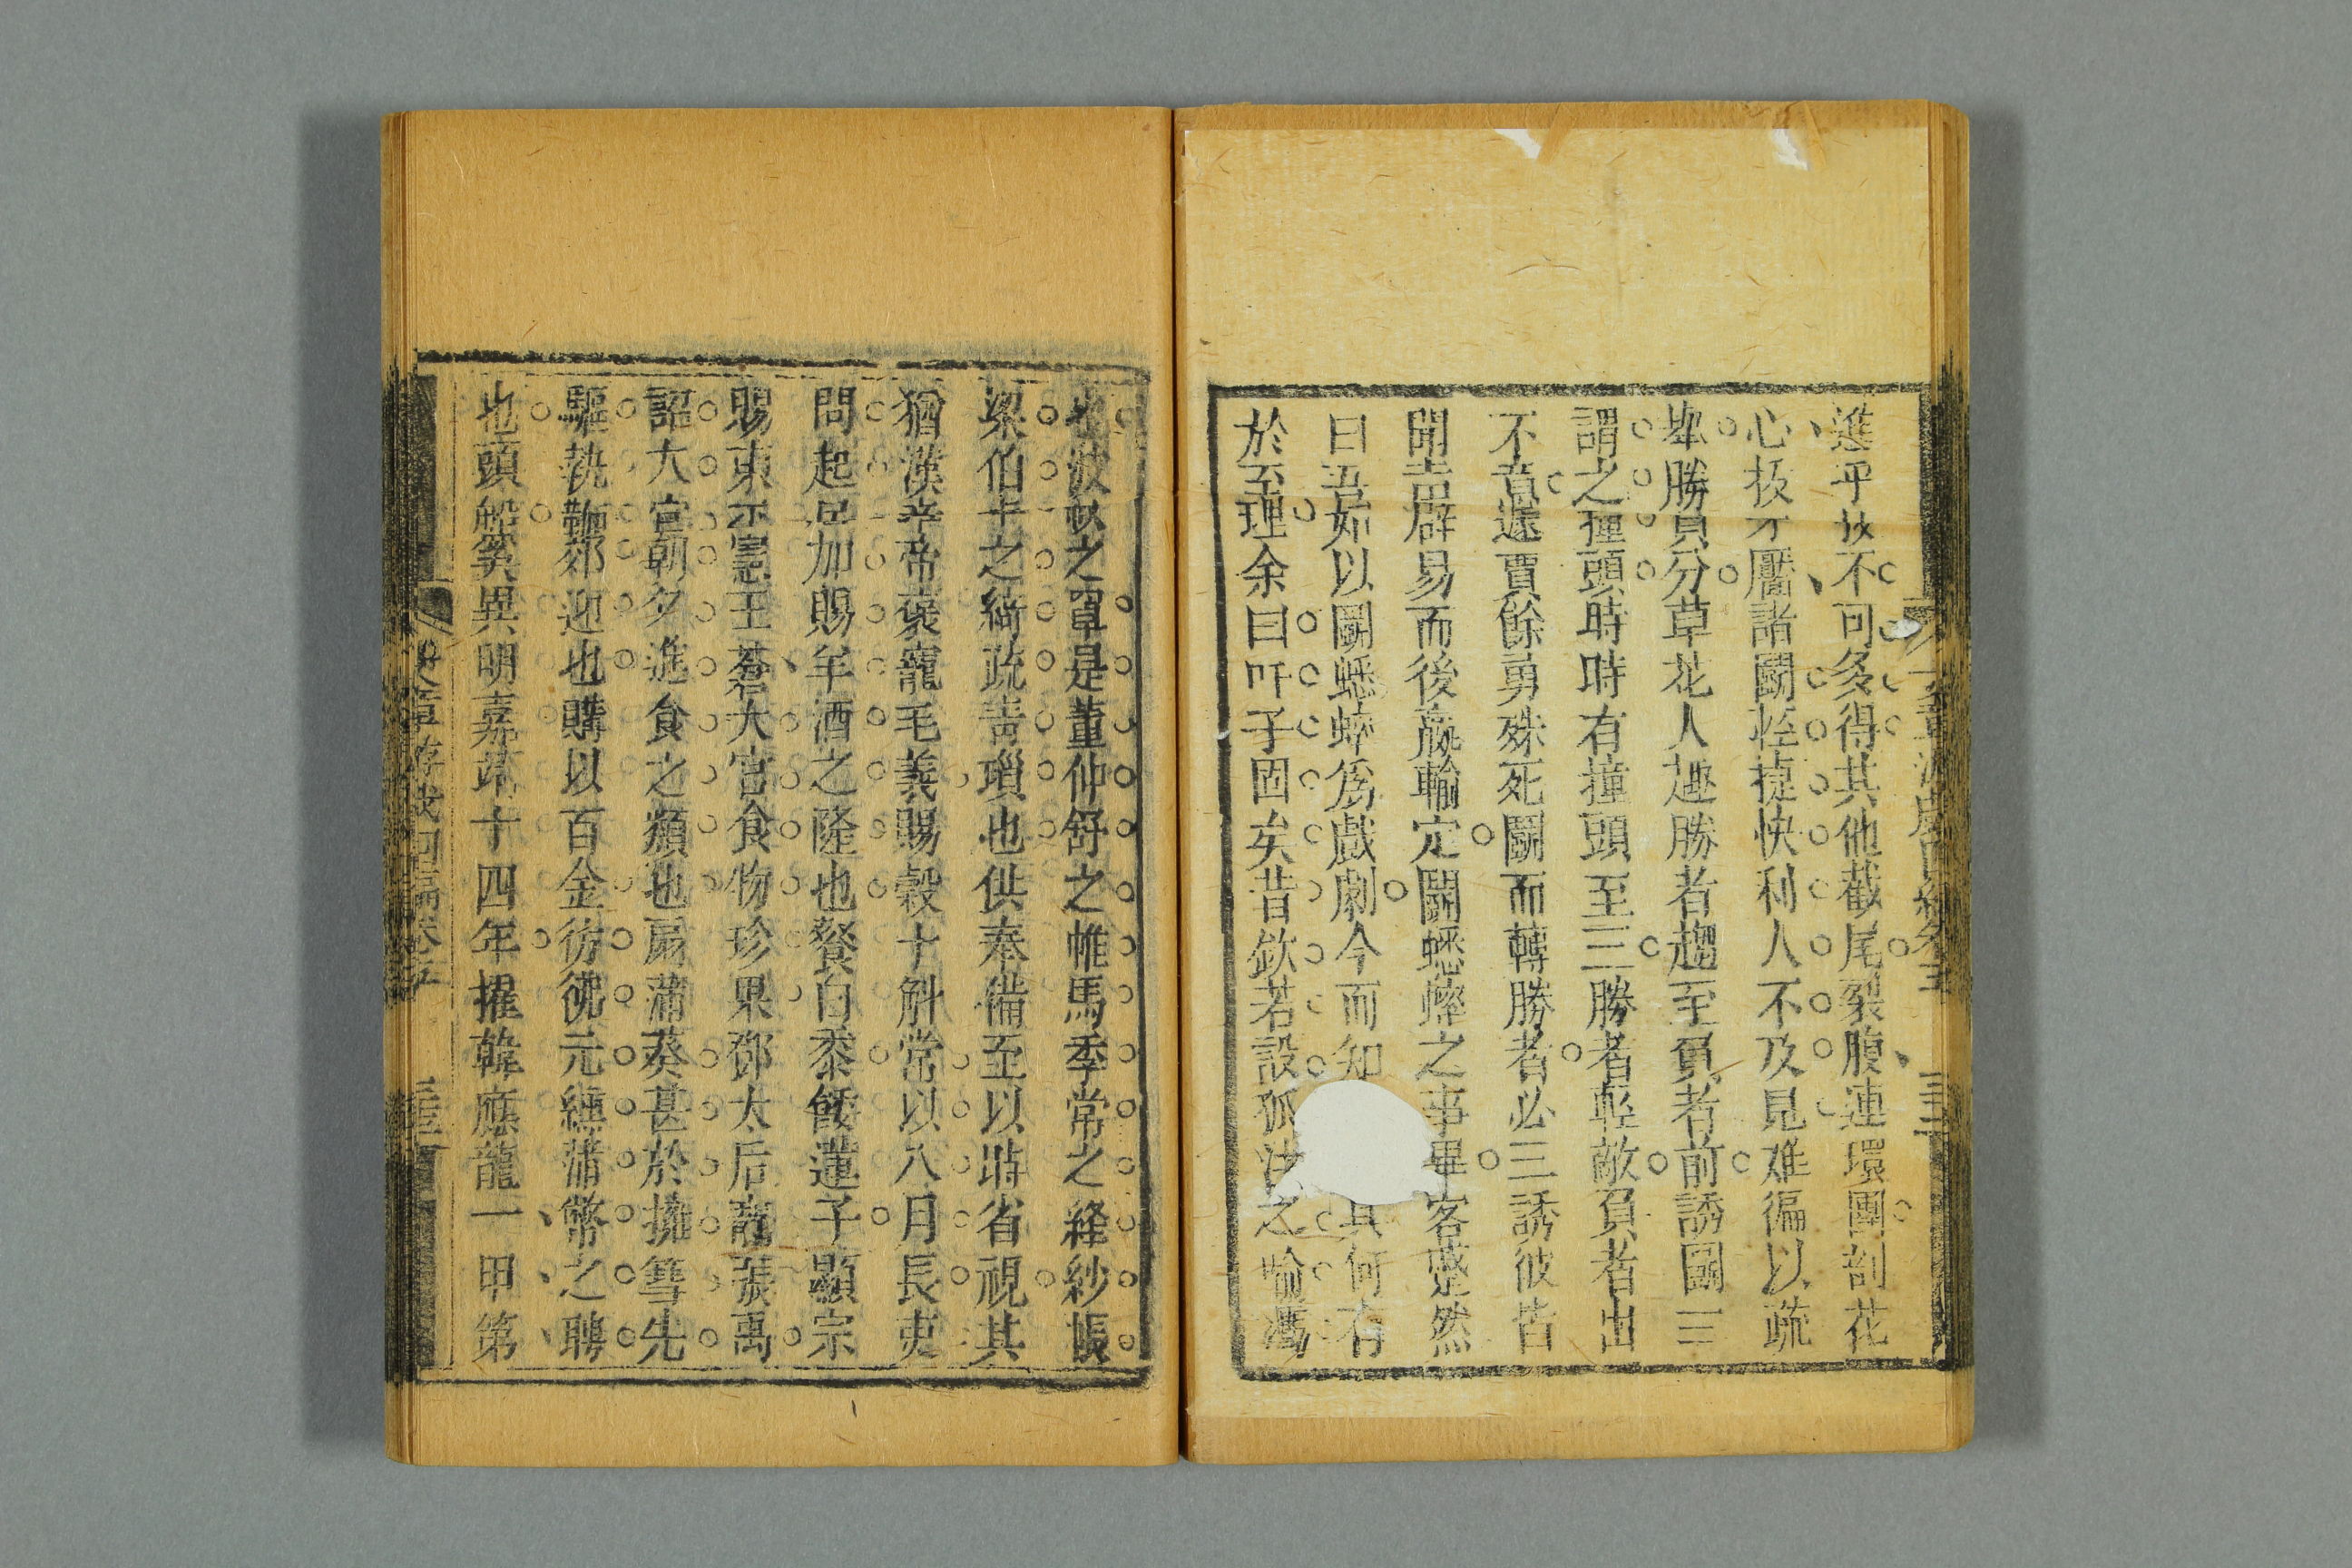 進乎技不可多得其他截尾裂腹連環團剖花
心拔牙靨諸鬭輕捷快利人不及見難徧以疏
舉勝負分草花人趣勝者趨至負者前誘圖三
謂之撞頭時時有撞頭至三勝者輕敵負者出
不意還賈餘勇殊死鬭而轉勝者必三誘彼皆
閉壺辟易而後贏輸定鬭蟋蟀之事畢客蹙然
曰吾始以鬭蟋蟀為戲劇今而知其何有
於至理余曰吁子固矣昔欽若設狐注之喻馮
也波斯之罩是董仲舒之帷馬季常之絳紗帳
梁伯之綺疏青瑣也供奉備至以時省視其
猶漢章帝褒寵毛義賜穀十斛常以八月長吏
問起居加賜羊酒之隆也餐白黍餧蓮子顯宗
賜東平憲王蒼大官食物珍果鄧太后寵張禹
詔大官朝夕進食之類也扇蒲葵甚於擁篲先
驅執鞭郊迎也購以百金彷彿元纁蒲幣之聘
也頭盤筴異明嘉靖十四年擢韓應龍一甲第